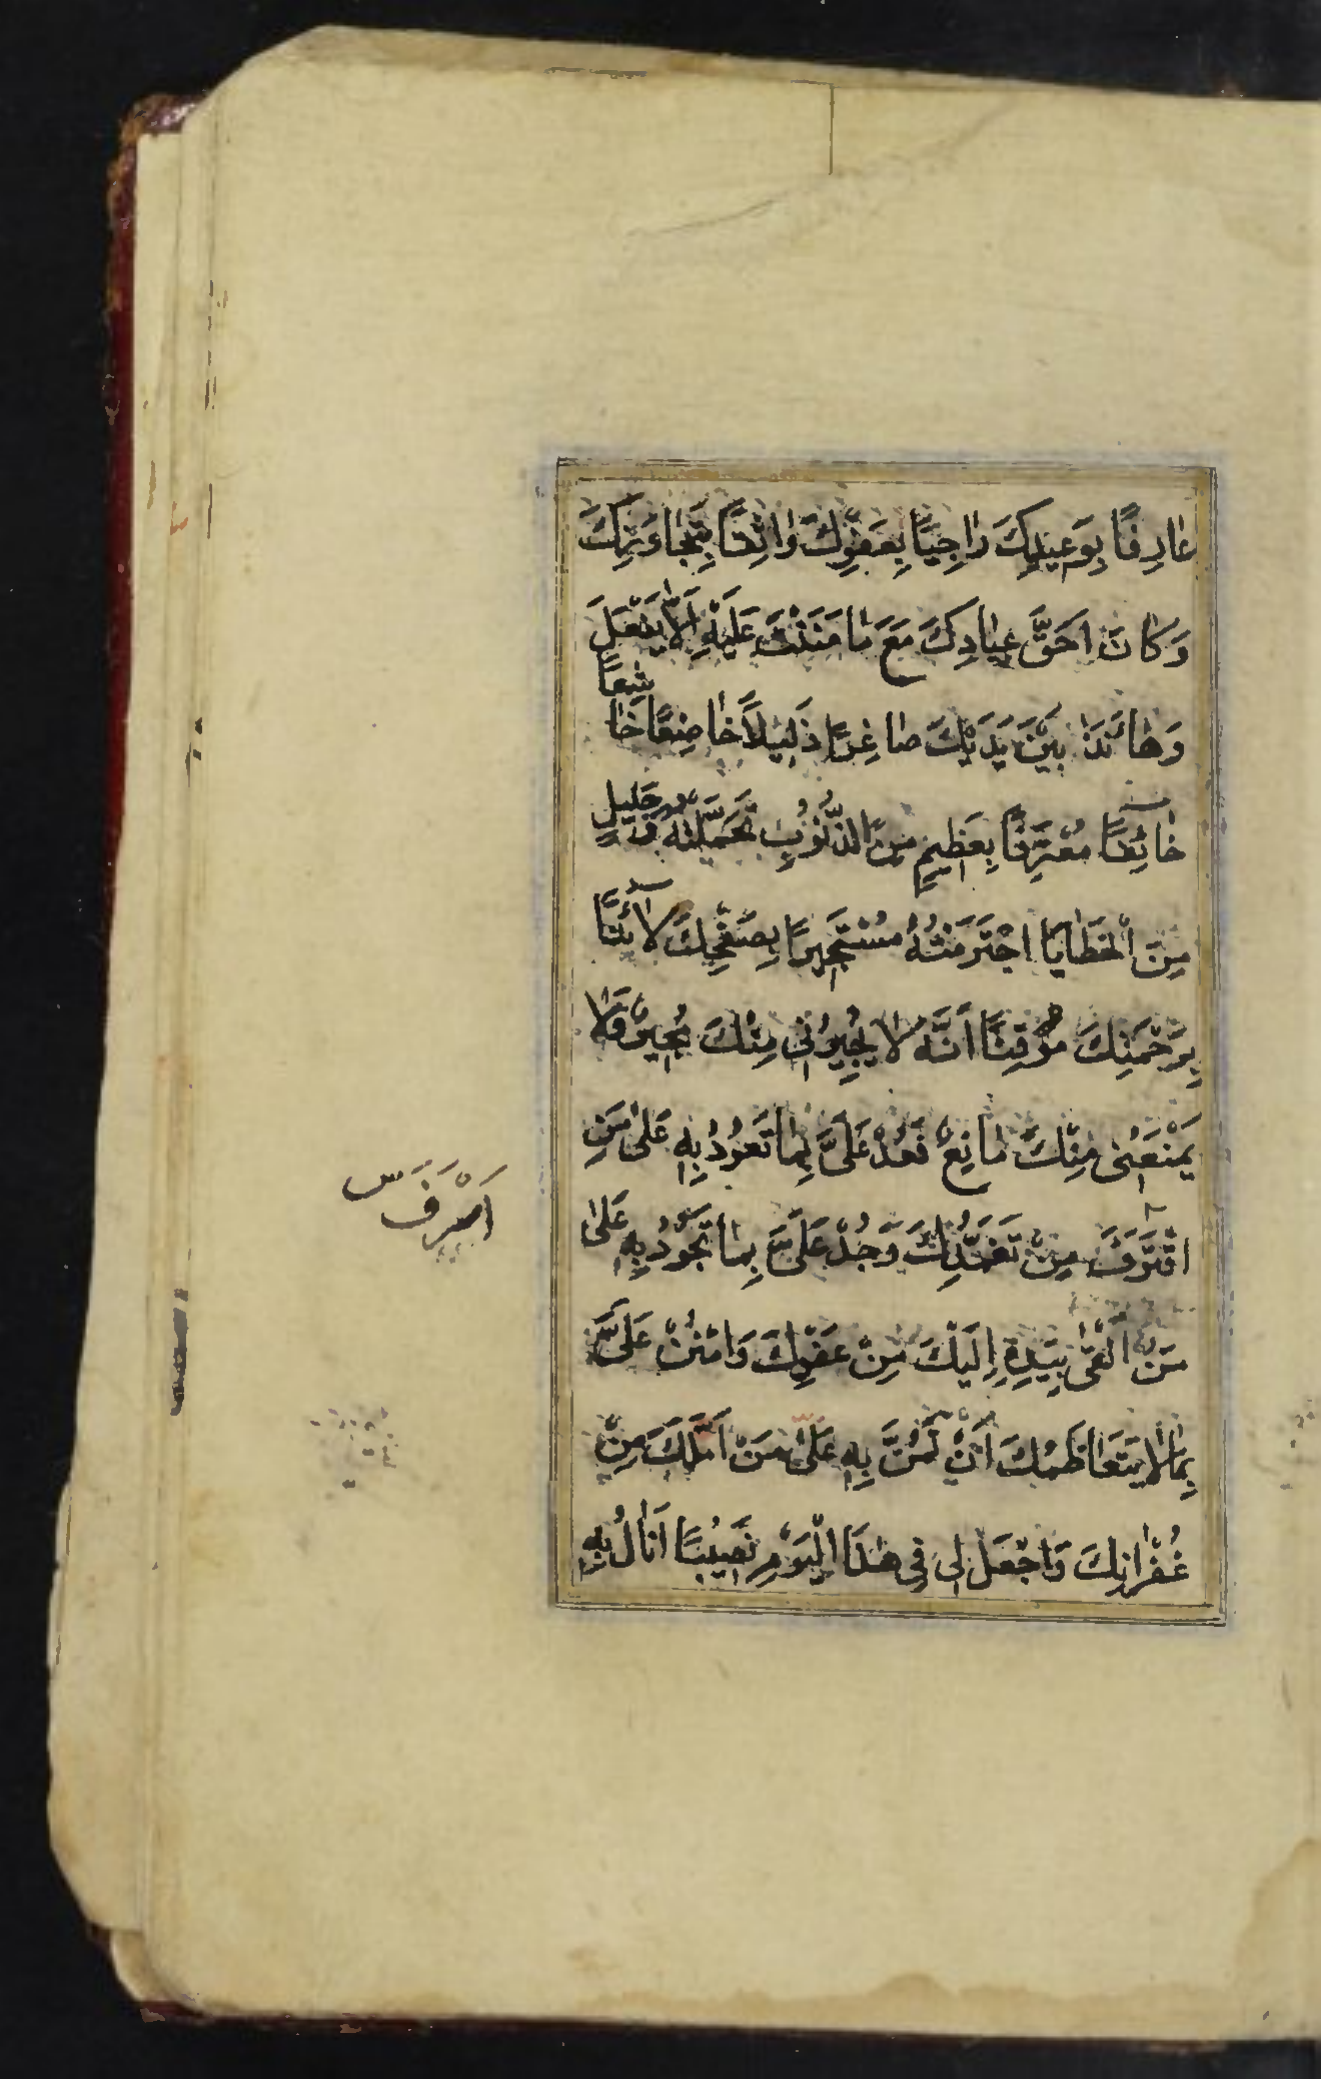 عَارِفًا بِوَعِيدِكَ رَاجِيًا بِعَفْوِكَ وَاثِقًا بِتَجَاوُزِكَ
وَكَانَ اَحَقَّ عِبَادِكَ مَعَ مَا مَنَنْتَ عَلَيْهِ اَلَّا يَفْعَلَ
وَهَا اَنَذَا بَيْنَ يَدَيْكَ صَاغِرًا ذَلِيلًا خَاضِعًا خَاشِعًا
خَائِفًا مُعْتَرِفًا بِعَظِيمٍ مِنَ الذُّنُوبِ تَحَمَّلْتُهُ وَجَلِيلٍ
مِنَ الْخَطَايَا اجْتَرَمْتُهُ مُسْتَجِيرًا بِصَفْحِكَ لَائِذًا
بِرَحْمَتِكَ مُوقِنًا اَنَّهُ لَا يُجِيرُنِي مِنْكَ مُجِيرٌ وَلَا
يَمْنَعُنِي مِنْكَ مَانِعٌ فَعُدْ عَلَيَّ بِمَا تَعُودُ بِهِ عَلَى مَنِ
اقْتَرَفَ مِنْ تَغَمُّدِكَ وَجُدْ عَلَيَّ بِمَا تَجُودُ بِهِ عَلَى
مَنْ اَلْقَى بِيَدِهِ اِلَيْكَ مِنْ عَفْوِكَ وَامْنُنْ عَلَيَّ
بِمَا لَا يَتَعَاظَمُكَ اَنْ تَمُنَّ بِهِ عَلَى مَنْ اَمَّلَكَ مِنْ
غُفْرَانِكَ وَاجْعَلْ لِي فِي هٰذَا الْيَوْمِ نَصِيبًا اَنَالُ بِهِ
اَسْرَفَ س